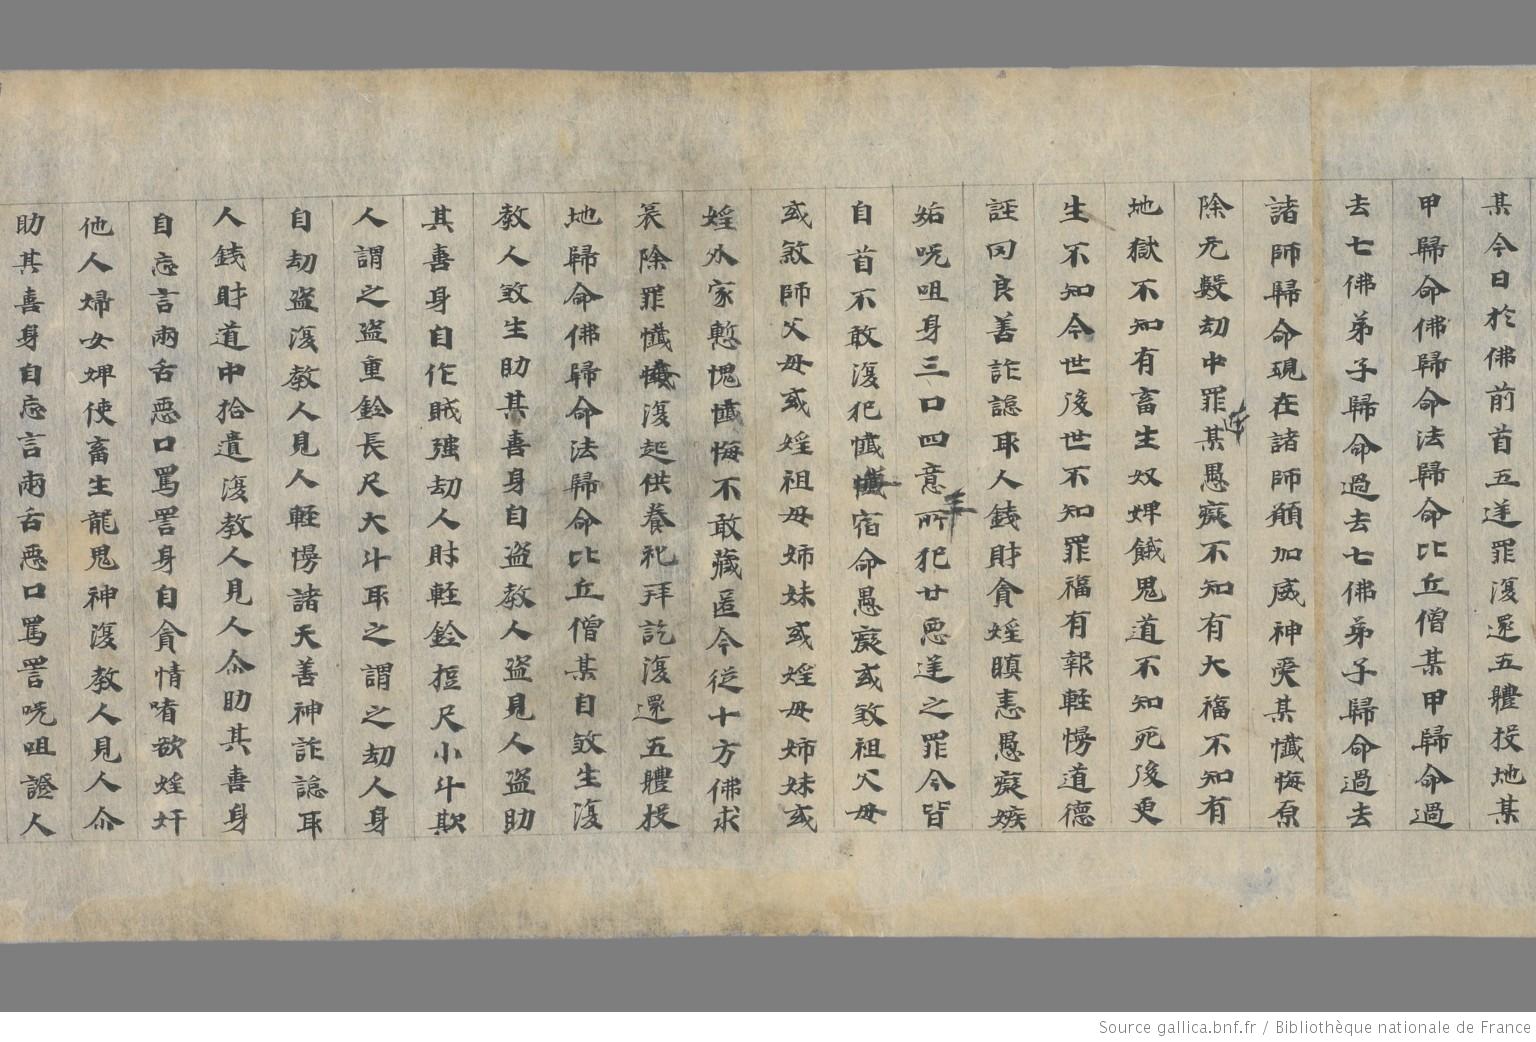 某今日於佛前首五逆罪復還五體投地某
甲歸命佛歸命法歸命比丘僧某甲歸命過
去七佛弟子歸命過去七佛弟子歸命過去
諸師歸命現在諸師願加威神受某懺悔原
除无數劫中罪某愚癡不知有大福不知有
逆
地獄不知有畜生奴婢餓鬼道不知死後更
生不知今世後世不知罪福有報輕慢道德
誣罔良善詐謟取人錢財貪婬瞋恚愚癡嫉
妬呪咀身三口四意所犯廿惡逆之罪今皆
三
自首不敢復犯懺宿命愚癡或煞祖父母
或煞師父母或婬祖母姉妹或婬母姉妹或
婬外家慙愧懺悔不敢藏匿今從十方佛求
哀除罪懺復起供養礼拜訖復還五體投
地歸命佛歸命法歸命比丘僧某自煞生復
教人煞生助其喜身自盜教人盜見人盜助
其喜身自作賊強劫人財輕鈴短尺小斗欺
人謂之盜重鈴長尺大斗取之謂之劫人身
自劫盜復教人見人輕慢諸天善神詐謟取
人錢財道中拾遺復教人見人亦助其喜身
自忘言兩舌惡口罵詈身自貪情嗜欲婬奸
他人婦女婢使畜生龍鬼神復教人見人亦
助其喜身自忘言兩舌惡口罵詈呪咀證人
Source gallica.bnf.fr / Bibliothèque nationale de France